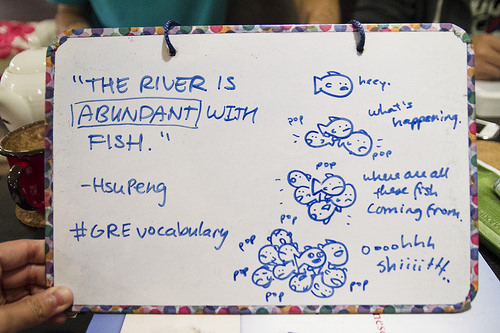 "THE RIVER IS
ABUNDANT WITH
FISH."
-HsuPeng
#GREvocabulary
heey.
what's
happening.
pop
pop
pop
where are all
these fish
coming from.
pop
pop
pop
pop
pop
pop
oooohhh
Shiiiitt.